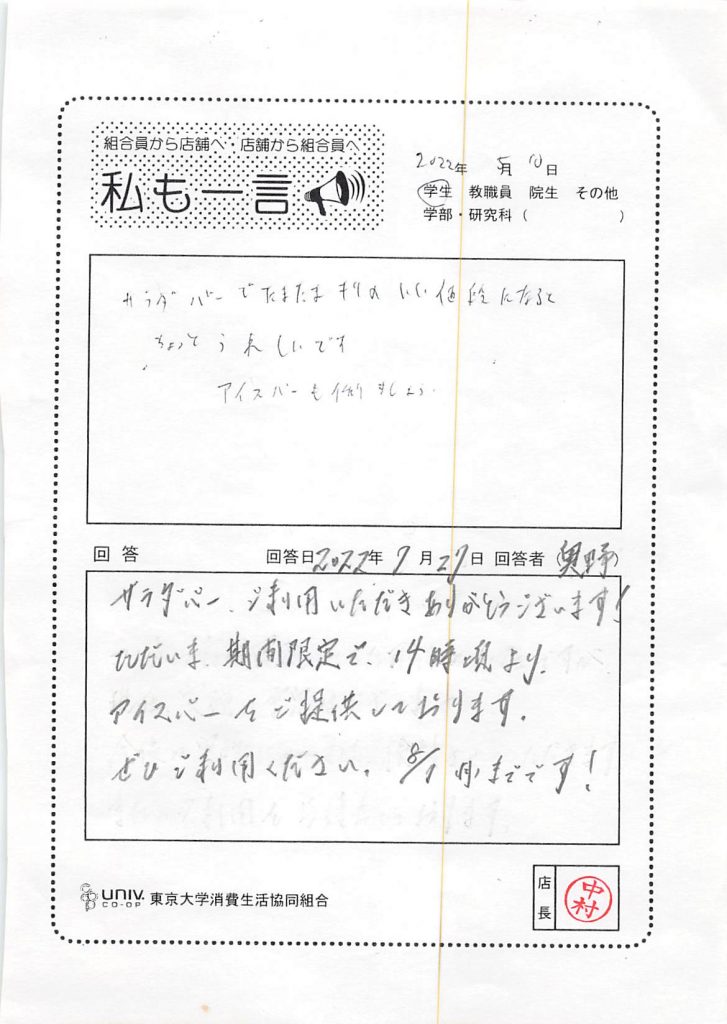 組合員から店舗へ・店舗から組合員へ
私も一言
2022年 5月 10日
学生 教職員 院生 その他
学部・研究科（ ）
サラダバーでたまたまキリのいい値段になると
ちょっとうれしいです
アイスバーも作りましょう.
回答 回答日2022年 7月27日 回答者 (奥野)
サラダバー、ご利用いただきありがとうございます!
ただいま、期間限定で、14時頃より、
アイスバーをご提供しております。
ぜひご利用ください。 8/1 (月)までです!
UNIV. CO-OP 東京大学消費生活協同組合
店長
中村